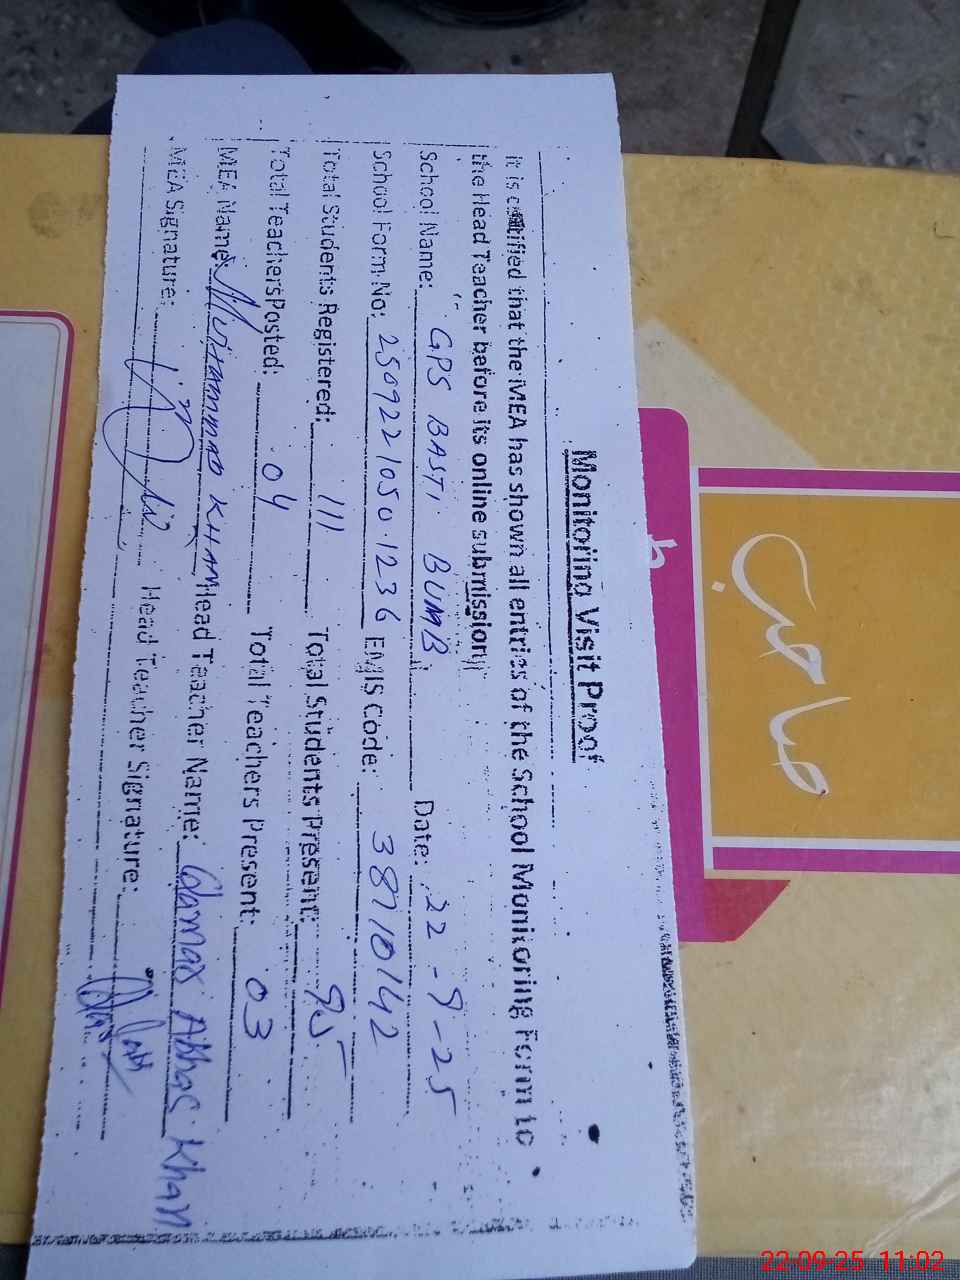 Monitoring Visit Proof
It is certified that the MEA has shown all entries of the School Monitoring Form to
the Head Teacher before its online submission.
School Name: GPS BASTI BUMB Date: 22-9-25
School Form No: 25092210501236 EMIS Code: 38710142
Total Students Registered: 111 Total Students Present: 95
Total Teachers Posted: 04 Total Teachers Present: 03
MEA Name: Muhammad KHAN Head Teacher Name: Qamar Abbas Khan
MEA Signature: Head Teacher Signature:
صاحب
22-09-25 11:02